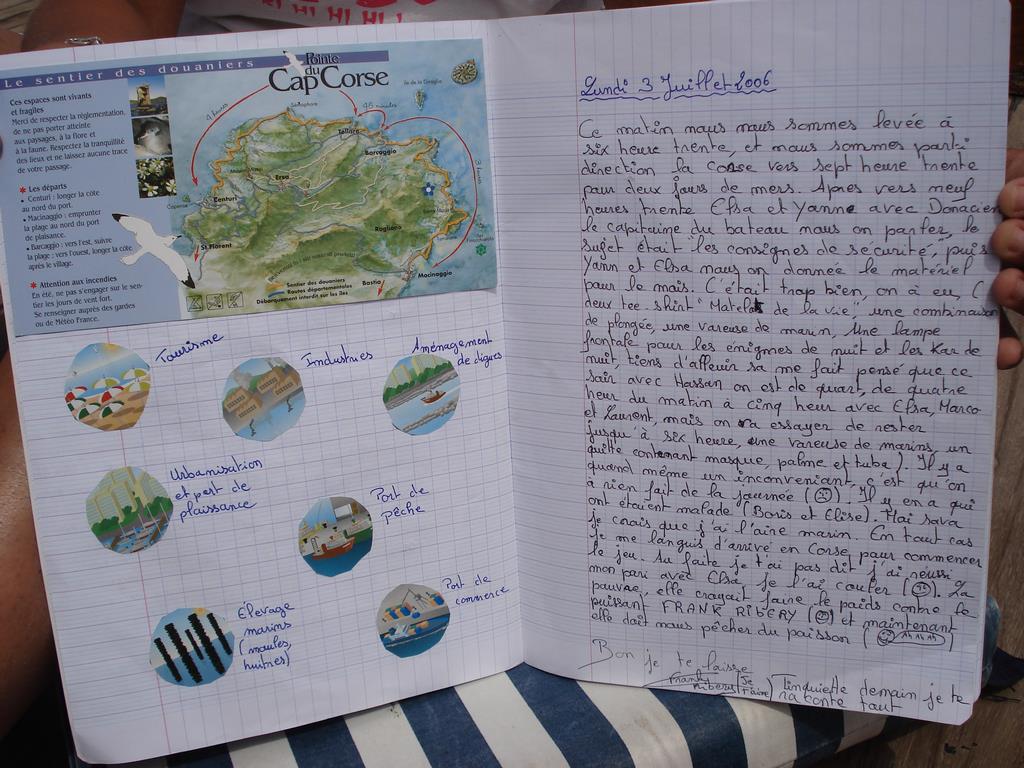 RI HI HI HI !
Le sentier des douaniers
Pointe
du
Cap Corse
Ces espaces sont vivants
et fragiles
Merci de respecter la réglementation,
de ne pas porter atteinte
aux paysages, à la flore et
à la faune. Respectez la tranquillité
des lieux et ne laissez aucune trace
de votre passage.
* Les départs
• Centuri : longer la côte
au nord du port.
• Macinaggio : emprunter
la plage au nord du port
de plaisance.
• Barcaggio : vers l'est, suivre
la plage ; vers l'ouest, longer la côte
après le village.
* Attention aux incendies
En été, ne pas s'engager sur le sen-
tier les jours de vent fort.
Se renseigner auprès des gardes
ou de Météo France.
4 heures
45 minutes
3 heures
Ile de la Giraglia
Sémaphore
Tollare
Barcaggio
Ersa
Centuri
Rogliano
St Florent
Macinaggio
Bastia
Sentier des douaniers
Routes départementales
Débarquement interdit sur les îles
Tourisme
Industries
Aménagement
de digues
Urbanisation
et port de
plaissance
Port de
pêche
Élevage
marins
(moules,
huitres)
Port de
commerce
Lundi 3 Juillet 2006
Ce matin nous nous sommes levée à
six heure trente, et nous sommes parti
direction la corse vers sept heure trente
pour deux jours de mers. Apres vers neuf
heures trente Elsa et Yanne avec Donacien
le capitaine du bateau nous on parler, le
sujet était "les consignes de sécurité", puis
Yann et Elsa nous on donnée le matériel
pour le mois. C'était trop bien, on à eu, (
deux tee-shirt "Matelot de la vie", une combinaison
de plongée, une vareuse de marin, Une lampe
frontale pour les énigmes de nuit et les Kar de
nuit, tiens d'affeuir sa me fait pensé que ce
soir avec Hassan on est de quart, de quatre
heur du matin à cinq heur avec Elsa, Marco
et Laurent, mais on va essayer de rester
jusqu'à six heure, une vareuse de marins, un
quitte contenant masque, palme et tuba). Il y a
quand même un inconveniant, c'est qu'on
à rien fait de la journée (☹). Il y en a qui
ont étaient malade (Boris et Elise). Moi sava
je crois que j'ai l'aire marin. En tout cas
je me languis d'arrivé en Corse pour commencer
le jeu. Au faite je t'ai pas dit j'ai réussi
mon pari avec Elsa, je l'ai couler (☺). La
pauvre, elle croyait faire le poids contre le
puissant FRANK RIBERY (☺) et maintenant
elle doit nous pêcher du poisson (☺ AH AH AH)
Bon je te laisse
(Frank Ribery) (Je t'aime) T'inquiette demain je te
raconte tout